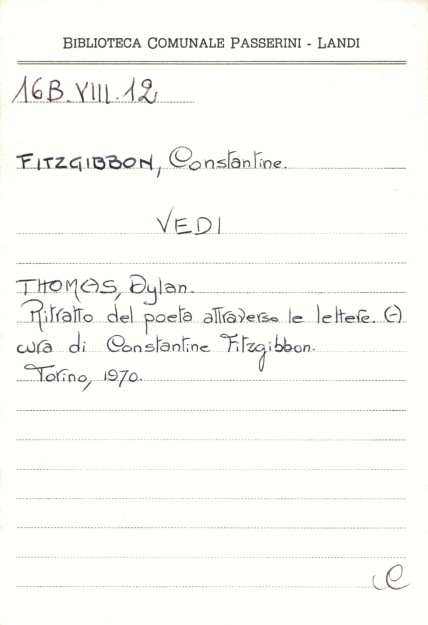 BIBLIOTECA COMUNALE PASSERINI - LANDI
16B.VIII.12
FITZGIBBON, Constantine.
VEDI
THOMAS, Dylan.
Ritratto del poeta attraverso le lettere. (A)
cura di Constantine Fitzgibbon.
Torino, 1970.